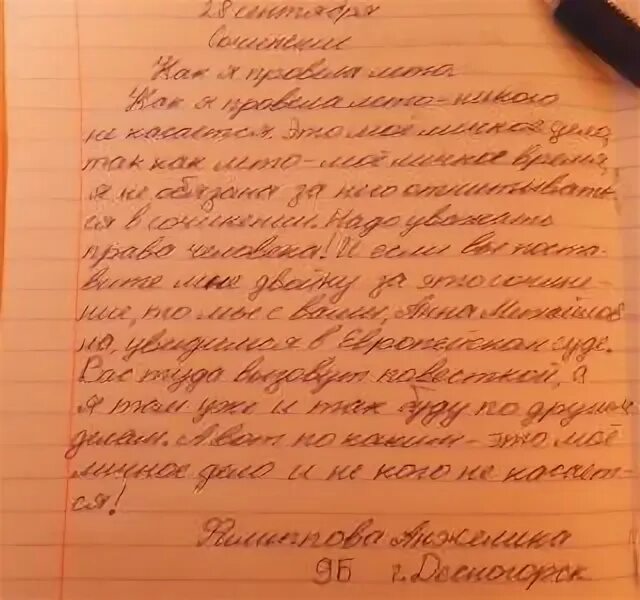 28 сентября
Сочинение
Как я провела лето.
Как я провела лето - никого
не касается. Это моё личное дело,
так как лето - моё личное время,
я не обязана за него отчитывать-
ся в сочинении. Надо уважать
права человека! И если вы поста-
вите мне двойку за это сочине-
ние, то мы с вами, Анна Михайлов
на, увидимся в Европейском суде.
Вас туда вызовут повесткой, а
я там уже и так буду по другим
делам. А вот по каким - это моё
личное дело и не кого не касает-
ся!
Филиппова Анжелина
9Б г. Десногорск